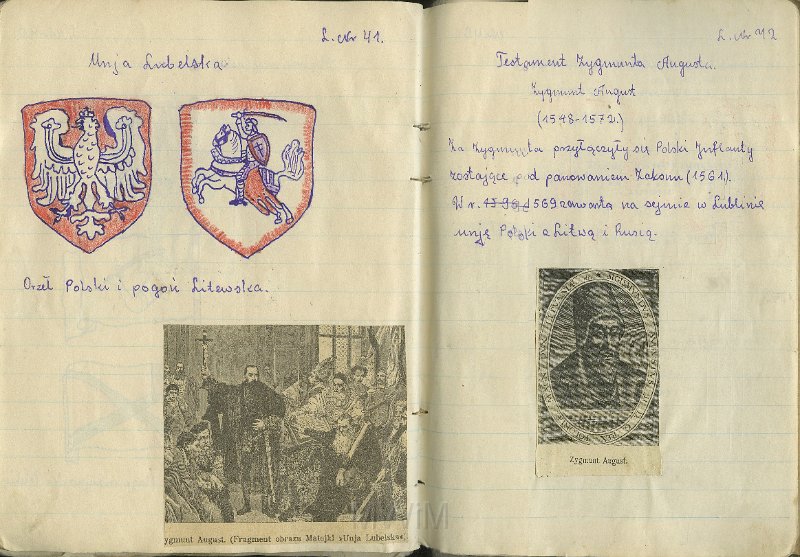 L. Nr 41.
Unja Lubelska
Orzeł Polski i pogoń Litewska.
zygmunt August. (Fragment obrazu Matejki »Unja Lubelska«.
L. Nr 42
Testament Zygmunta Augusta.
Zygmunt August
(1548-1572.)
Za Zygmunta przyłączyły się Polski Inflanty
zostające pod panowaniem Zakonu (1561.).
W r. 1569 zawarta na sejmie w Lublinie
unję Polski a Litwą i Rusią.
Zygmunt August.